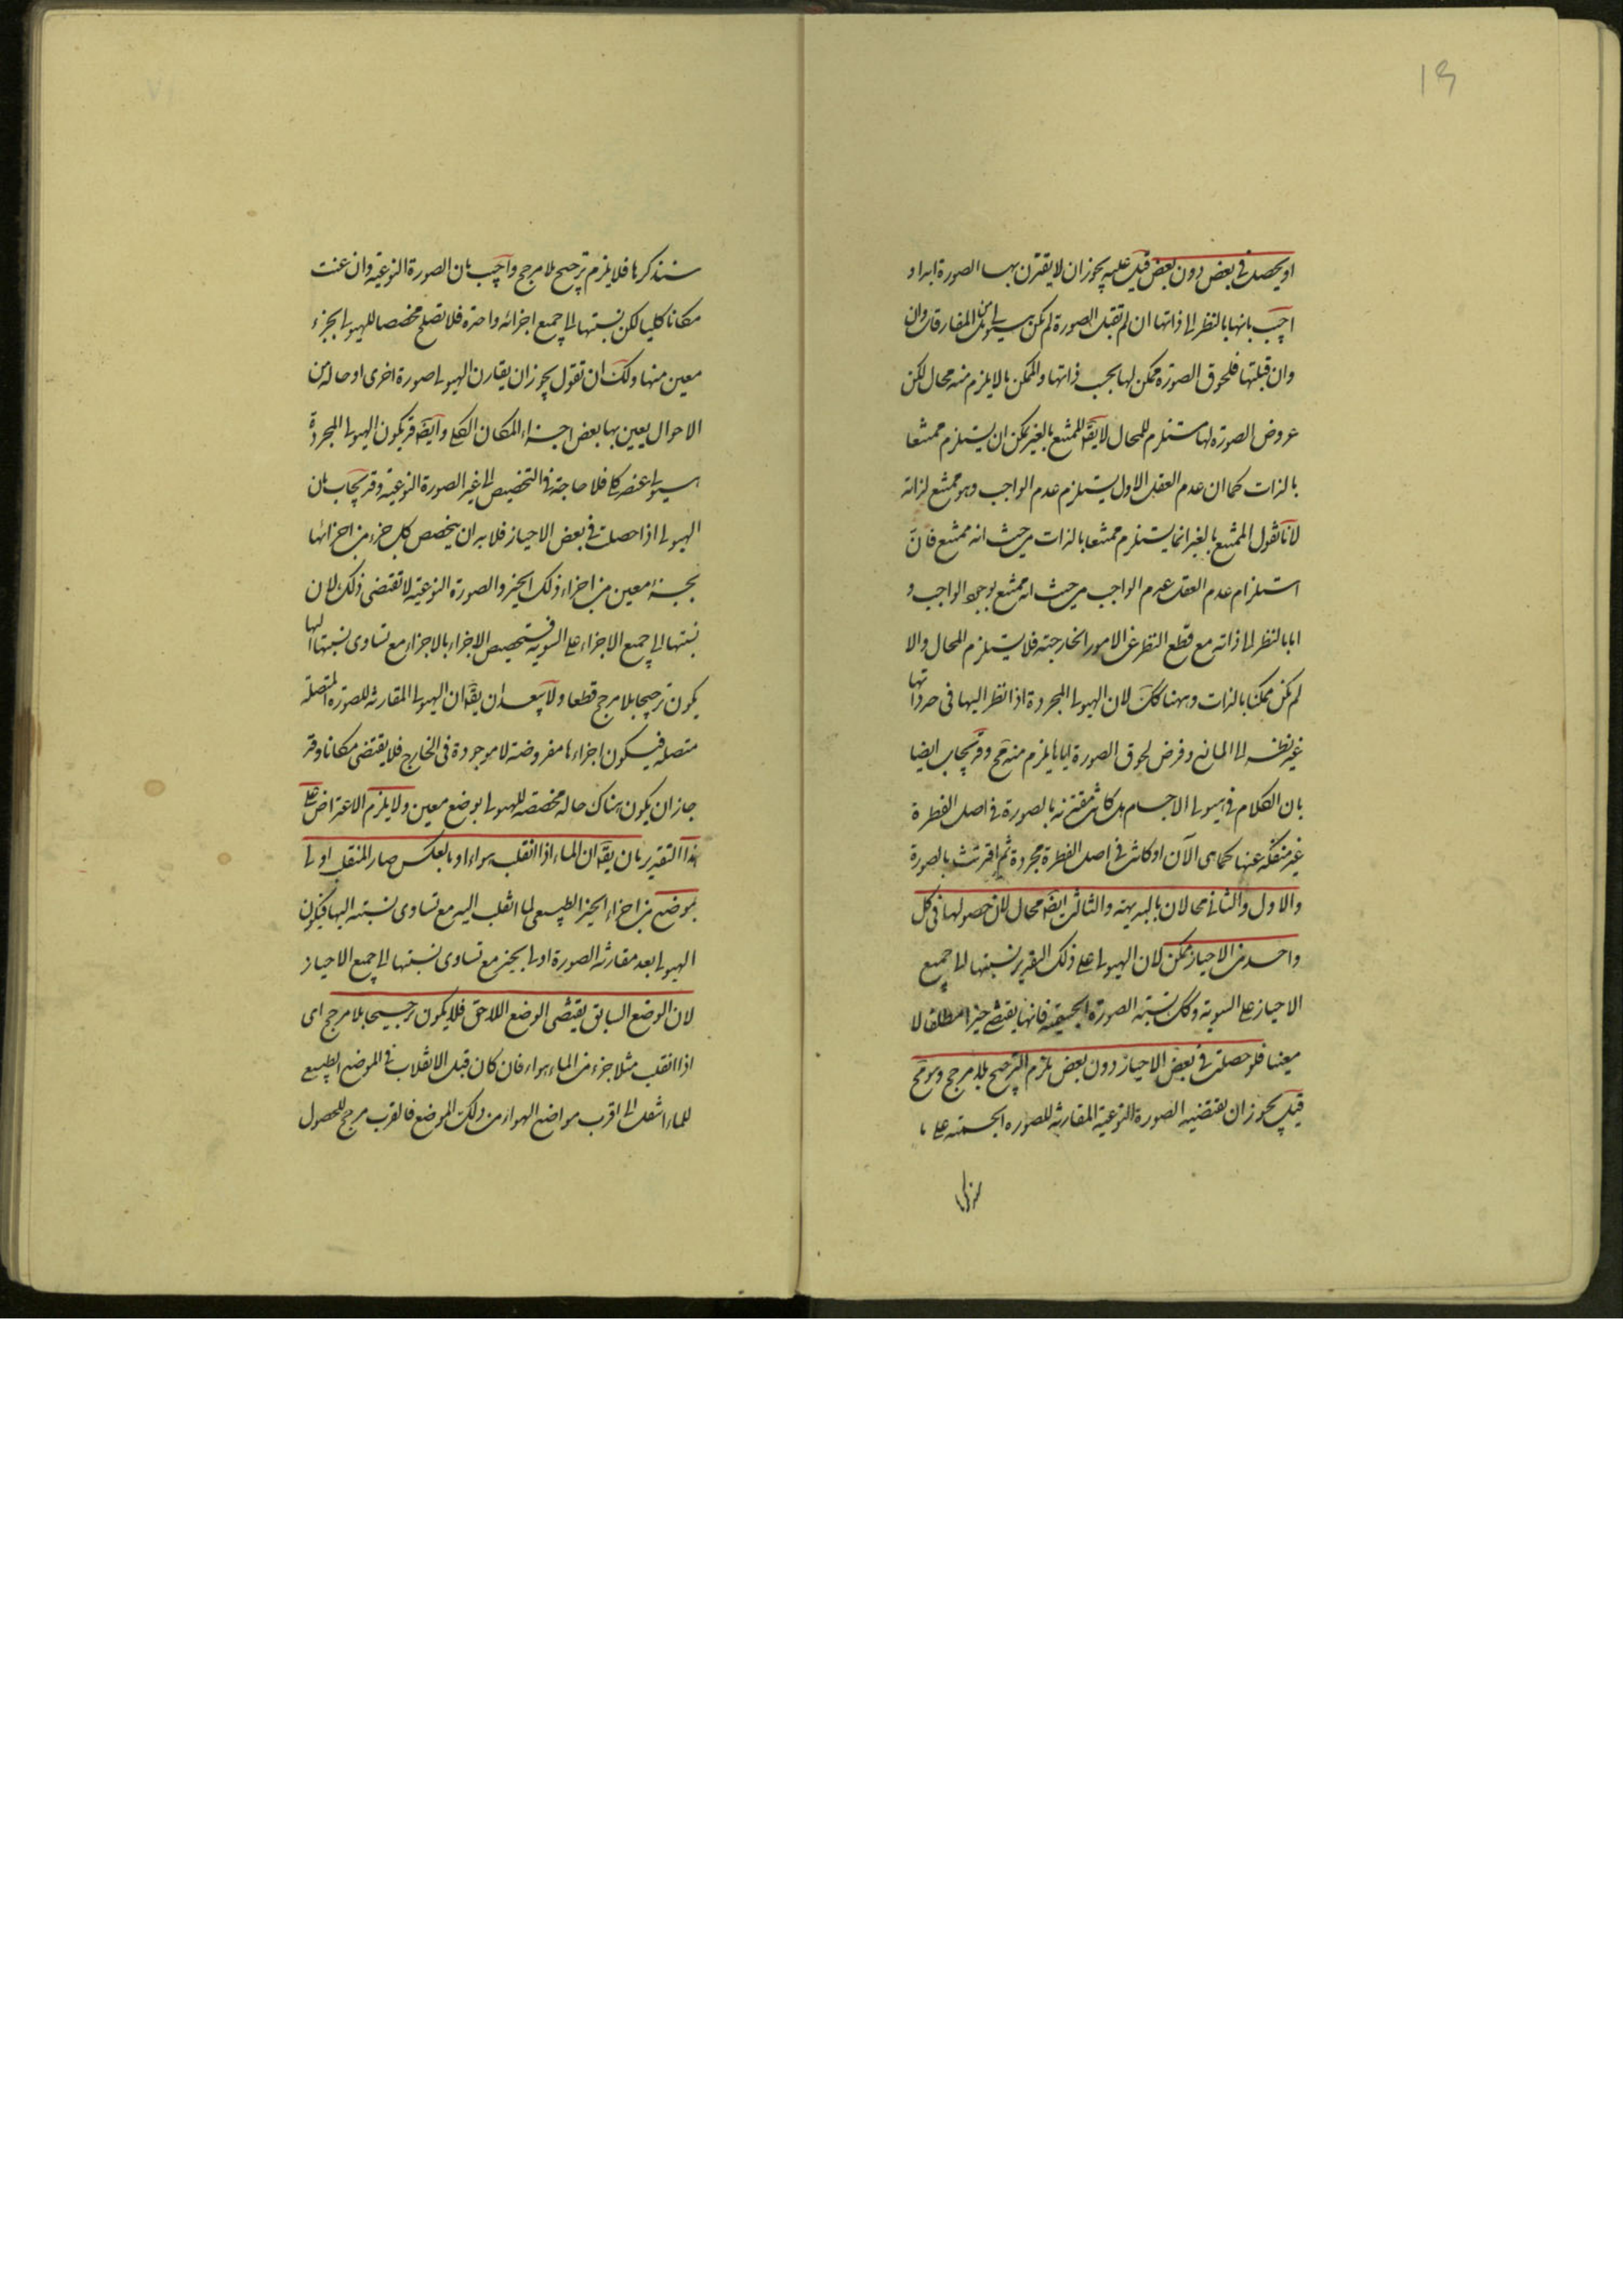 ١٩
او يحصل فى بعض دون بعض قيل عليه يجوز ان لا يقترن بها الصورة ابدا و
اجيب بانها بالنظر الى ذاتها ان لم تقبل الصورة لم تكن هيولى بل من المفارقات وان
وان قبلتها فلحوق الصورة ممكن لها بحسب ذاتها والممكن ما لا يلزم منه محال لكن
عروض الصورة لها مستلزم للمحال لا يقال الممتنع بالغير يمكن ان يستلزم ممتنعا
بالذات كما ان عدم العقل الاول يستلزم عدم الواجب وهو ممتنع لذاته
لانا نقول الممتنع بالغير انما يستلزم ممتنعا بالذات من حيث انه ممتنع فان
استلزام عدم العقل عدم الواجب من حيث انه ممتنع بوجود الواجب و
اما بالنظر الى ذاته مع قطع النظر عن الامور الخارجية فلا يستلزم المحال والا
لم يكن ممكنا بالذات وههنا كك لان الهيولى المجردة اذا نظر اليها فى حد ذاتها
غير نظر الى المانع وفرض لحوق الصورة اياها يلزم منه مح وقد يجاب ايضا
بان الكلام فى هيولى الاجسام هل كانت مقترنة بالصورة فى اصل الفطرة
غير منفكة عنها كما هى الآن او كانت فى اصل الفطرة مجردة ثم اقترنت بالصورة
والاول والثانى محالان بالبديهة والثالث ايضا محال لان حصولها فى كل
واحد من الاحياز ممكن لان الهيولى على ذلك التقدير نسبتها الى جميع
الاحياز على السوية وكك نسبة الصورة الجسمية فانها يقتضى حيزا مطلقا لا
معينا فلو حصلت فى بعض الاحياز دون بعض يلزم الترجيح بلا مرجح وهو مح
قيل يجوز ان يقتضيه الصورة النوعية المقارنة للصورة الجسمية على ما
سنذكرها
سنذكرها فلا يلزم ترجيح بلا مرجح واجيب بان الصورة النوعية وان عنت
مكانا كليا لكن نسبتها الى جميع اجزائه واحدة فلا تصلح مخصصا للهيولى بجزء
معين منها ولك ان تقول يجوز ان يقارن الهيولى صورة اخرى او حالة من
الاحوال يعين بها بعض اجزاء المكان الكلى وايضا قد يكون الهيولى المجردة
هيولى عنصر كلى فلا حاجة فى التخصيص الى غير الصورة النوعية وقد يجاب بان
الهيولى اذا حصلت فى بعض الاحياز فلا بد ان يتخصص كل جزء من اجزائها
بجزء معين من اجزاء ذلك الحيز والصورة النوعية لا تقتضى ذلك لان
نسبتها الى جميع الاجزاء على السوية فتخصيص الاجزاء بالاجزاء مع تساوى نسبتها اليها
يكون ترجيحا بلا مرجح قطعا ولا يبعد ان يقال ان الهيولى المقارنة للصورة المتصلة
متصلة فيكون اجزاءها مفروضة لا موجودة فى الخارج فلا يقتضى مكانا وقد
جاز ان يكون هناك حالة مخصصة للهيولى بوضع معين ولا يلزم الاعتراض على
هذا التقدير بان يقال ان الماء اذا انقلب هواء او بالعكس صار المنقلب اولى
بموضع من اجزاء الحيز الطبيعى لما انقلب اليه مع تساوى نسبته اليها فيكون
الهيولى بعد مقارنة الصورة اولى بحيز مع تساوى نسبتها الى جميع الاحياز
لان الوضع السابق يقتضى الوضع اللاحق فلا يكون ترجيحا بلا مرجح اى
اذا انقلب مثلا جزء من الماء هواء فان كان قبل الانقلاب فى الموضع الطبيعى
للماء انتقل الى اقرب مواضع الهواء من ذلك الموضع فالقرب مرجح للحصول